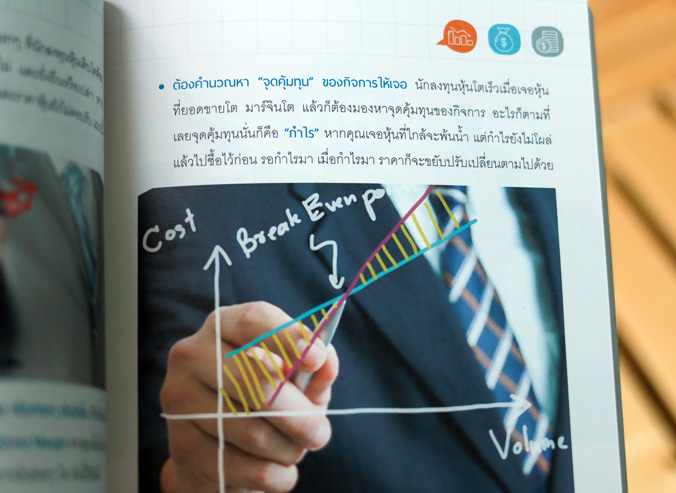 • ต้องคำนวณหา “จุดคุ้มทุน” ของกิจการให้เจอ นักลงทุนหุ้นโตเร็วเมื่อเจอหุ้น
ที่ยอดขายโต มาร์จินโต แล้วก็ต้องมองหาจุดคุ้มทุนของกิจการ อะไรก็ตามที่
เลยจุดคุ้มทุนนั่นก็คือ “กำไร” หากคุณเจอหุ้นที่ใกล้จะพ้นน้ำ แต่กำไรยังไม่โผล่
แล้วไปซื้อไว้ก่อน รอกำไรมา เมื่อกำไรมา ราคาก็จะขยับปรับเปลี่ยนตามไปด้วย
Cost
Break Even po
Volume